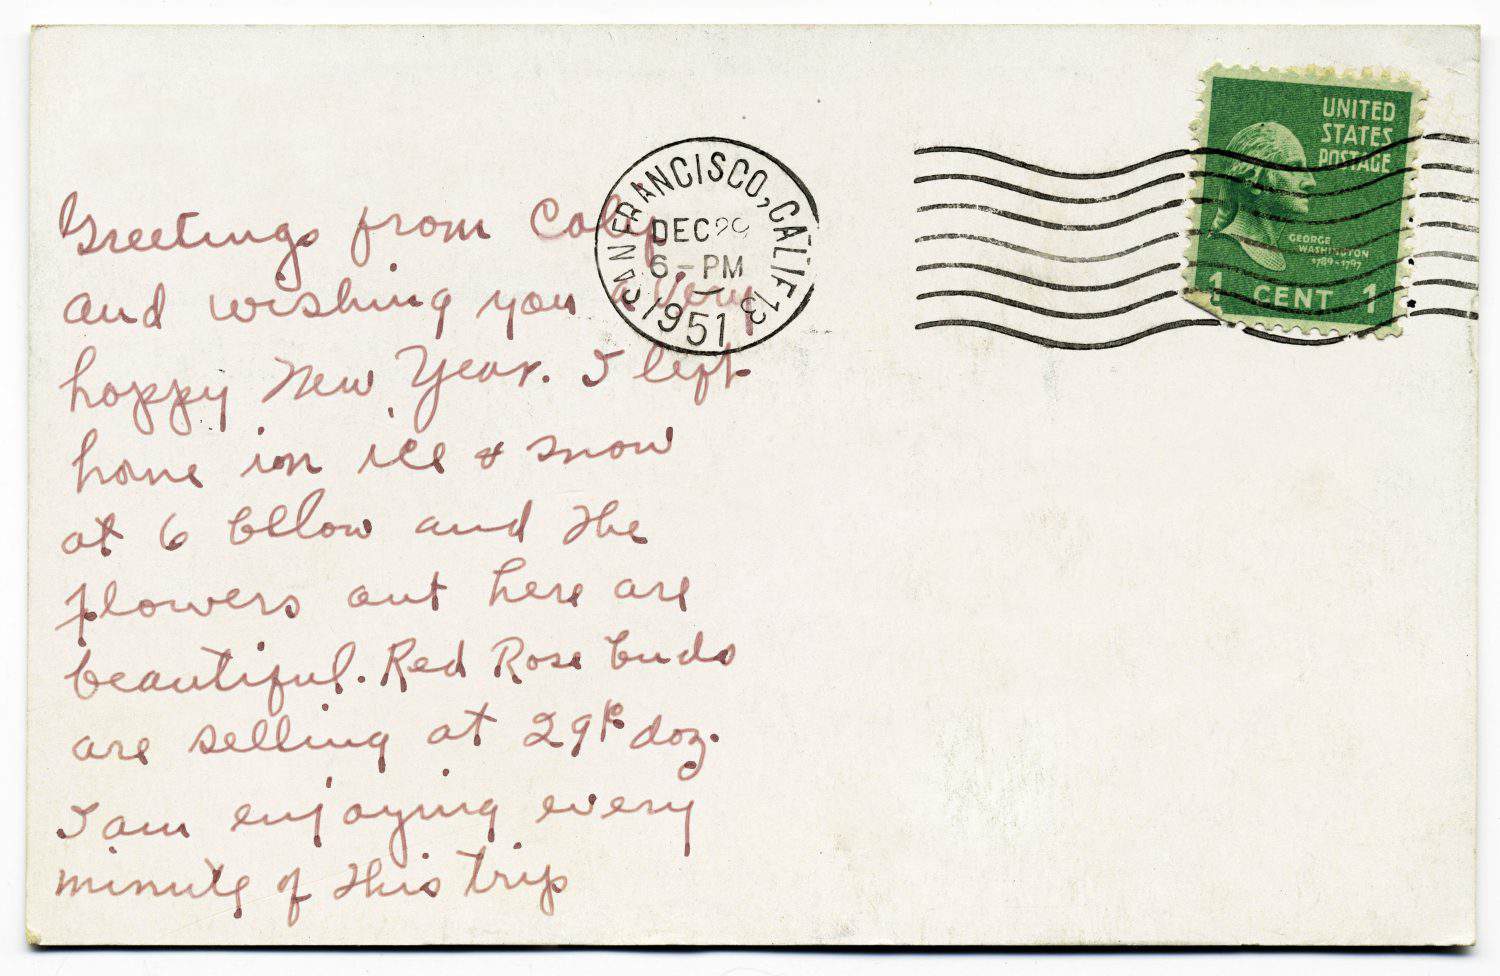 UNITED
STATES
POSTAGE
GEORGE
WASHINGTON
1789-1797
1 CENT 1
SAN FRANCISCO, CALIF 13
DEC 29
6-PM
1951
Greetings from Calif
and wishing you a Very
happy New Year. I left
home in ice & snow
at 6 bellow and the
flowers out here are
beautiful. Red Rose buds
are selling at 29¢ doz.
I am enjoying every
minute of this trip